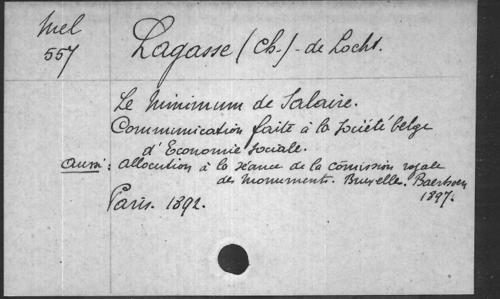 Mel
557
Lagasse (Ch.)-de Locht.
Le Minimum de Salaire.
Communication faite à la Société belge
d'Economie Sociale.
aussi : allocution à la séance de la comission royale
des Monuments. Bruxelles. Baertsoen
1897.
Paris. 1892.